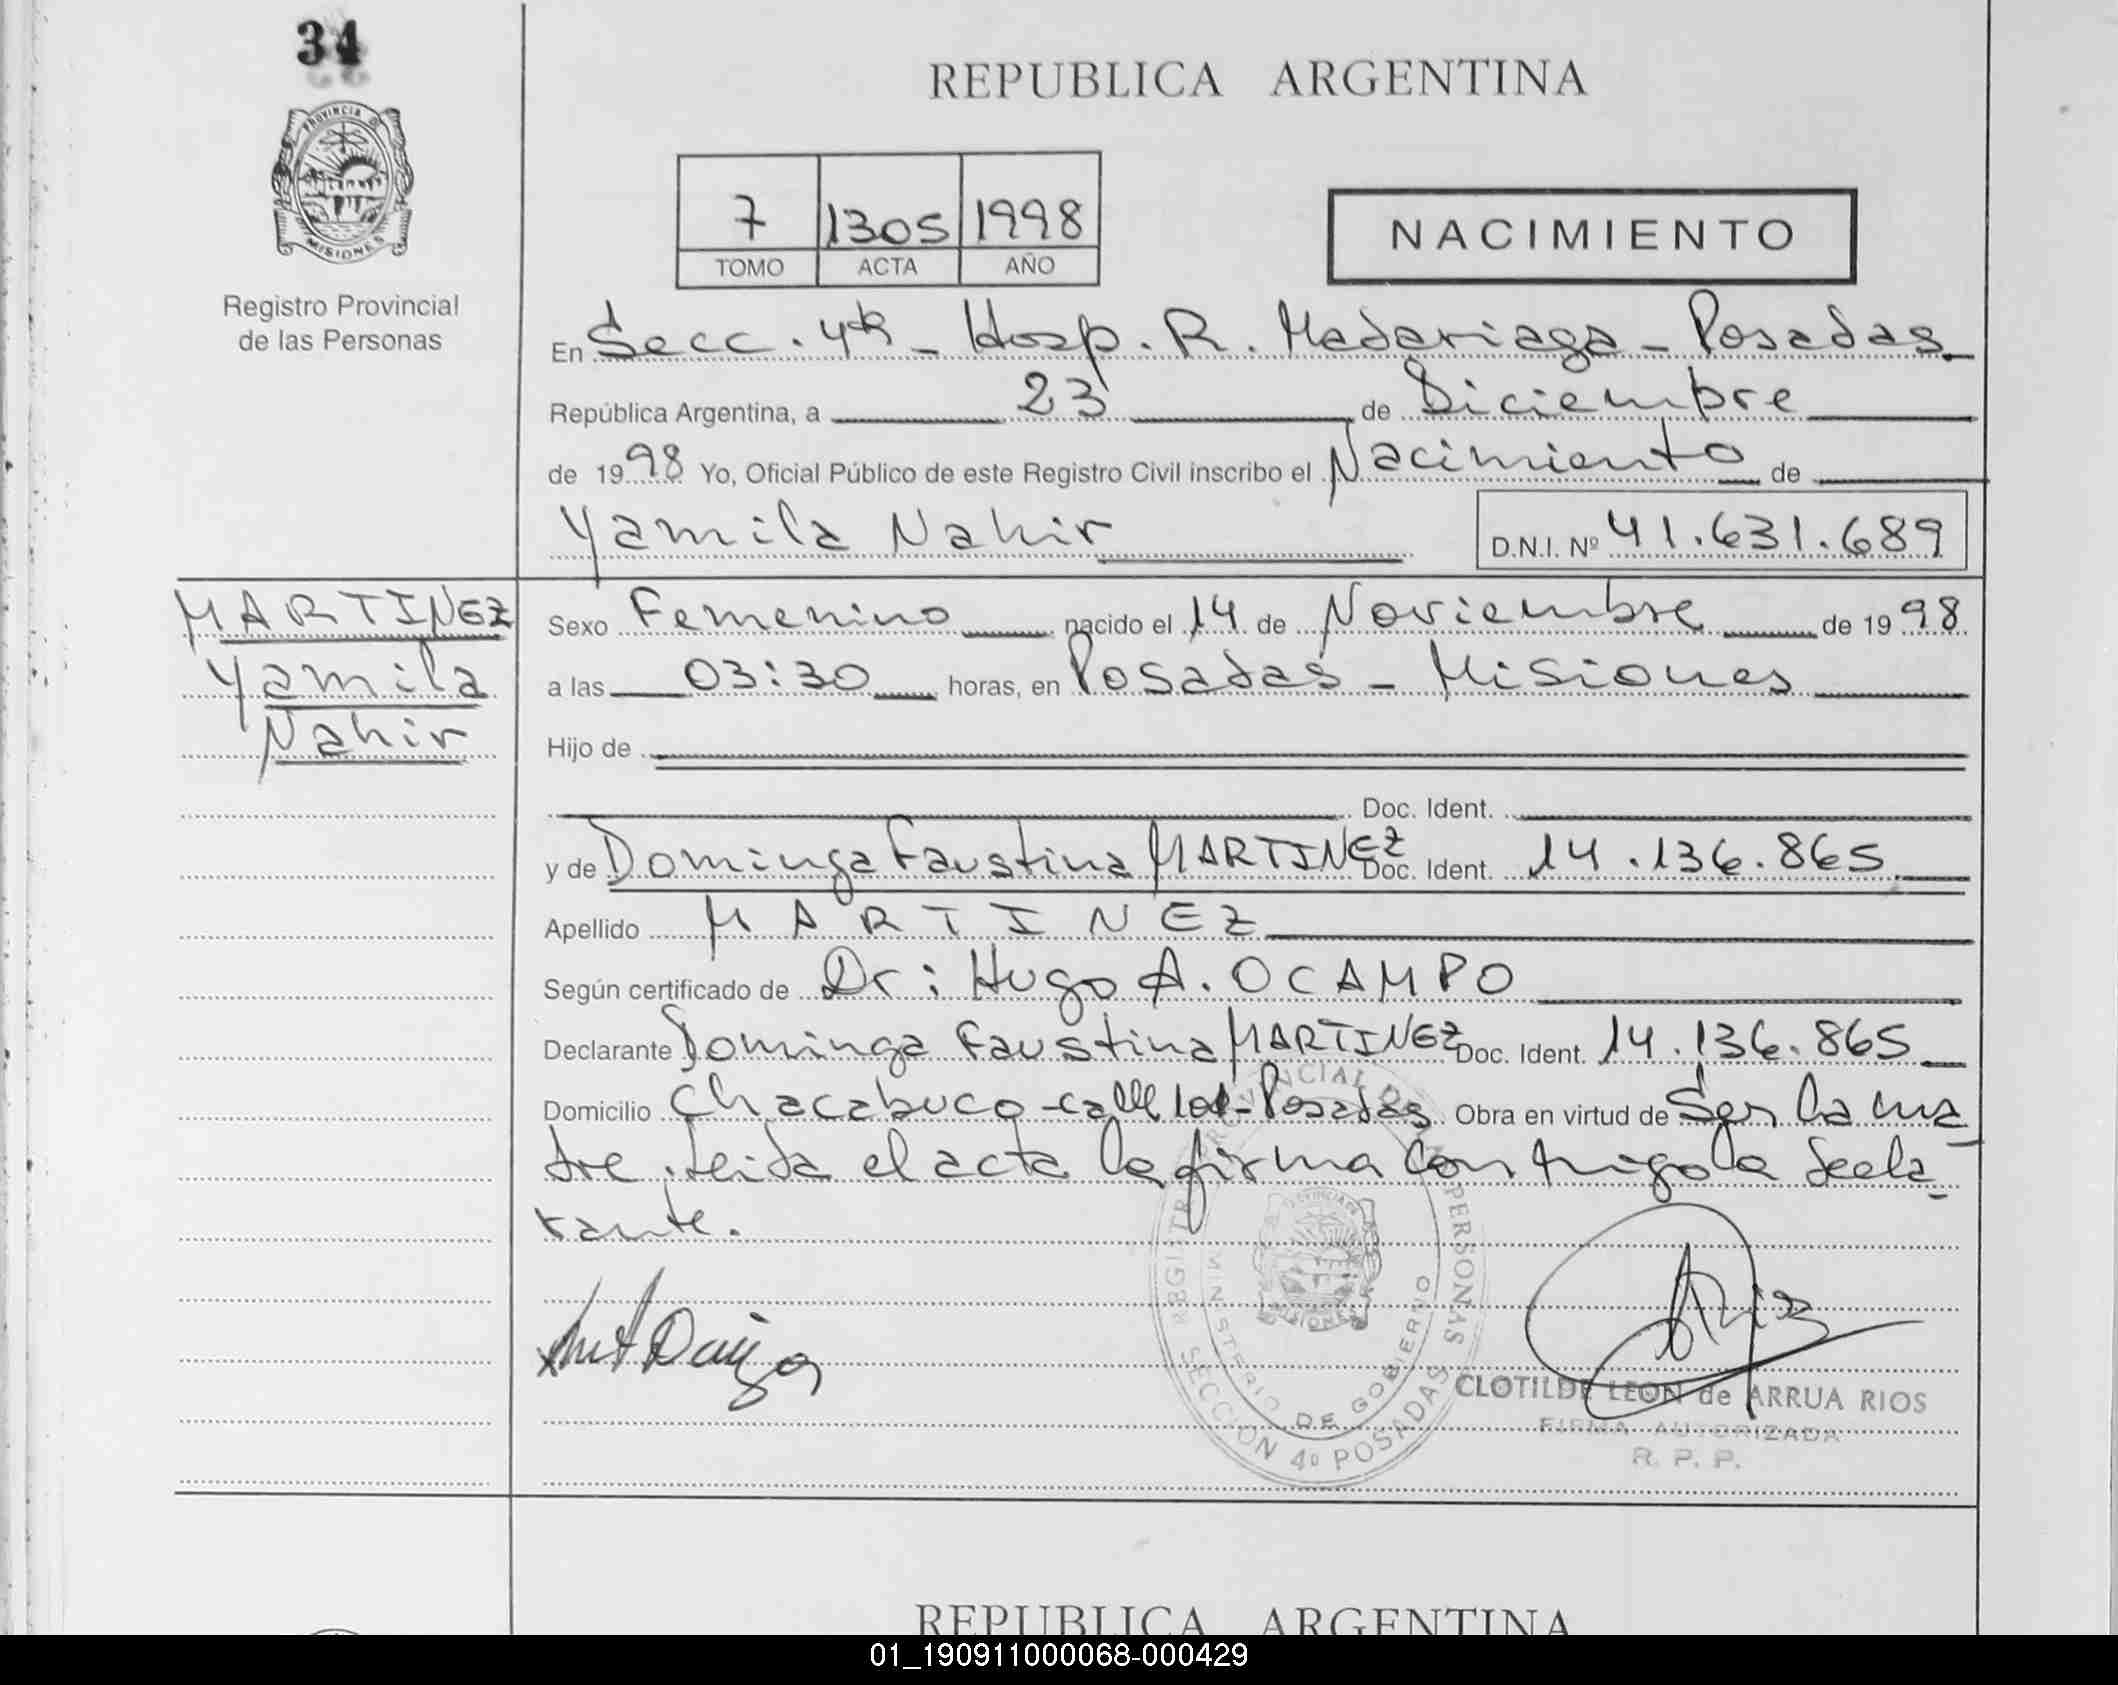 34
PROVINCIA D
MISIONES
Registro Provincial
de las Personas
REPUBLICA ARGENTINA
7 1305 1998
TOMO ACTA AÑO
NACIMIENTO
En Secc. 4ta - Hosp. R. Madariaga - Posadas
República Argentina, a 23 de Diciembre
de 1998 Yo, Oficial Público de este Registro Civil inscribo el Nacimiento de
Yamila Nahir D.N.I. Nº 41.631.689
MARTINEZ
Yamila
Nahir
Sexo Femenino nacido el 14 de Noviembre de 1998
a las 03:30 horas, en Posadas - Misiones
Hijo de
Doc. Ident.
y de Dominga Faustina MARTINEZ Doc. Ident. 14.136.865
Apellido MARTINEZ
Según certificado de Dr: Hugo A. OCAMPO
Declarante Dominga Faustina MARTINEZ Doc. Ident. 14.136.865
Domicilio Chacabuco - calle - Posadas Obra en virtud de Ser la ma
dre. Leida el acta la firma conmigo la decla-
rante.
REGISTRO PROVINCIAL DE LAS PERSONAS
MINISTERIO DE GOBIERNO
SECCION 4º POSADAS
CLOTILDE LEON de ARRUA RIOS
FIRMA AUTORIZADA
R. P. P.
REPUBLICA ARGENTINA
01_190911000068-000429